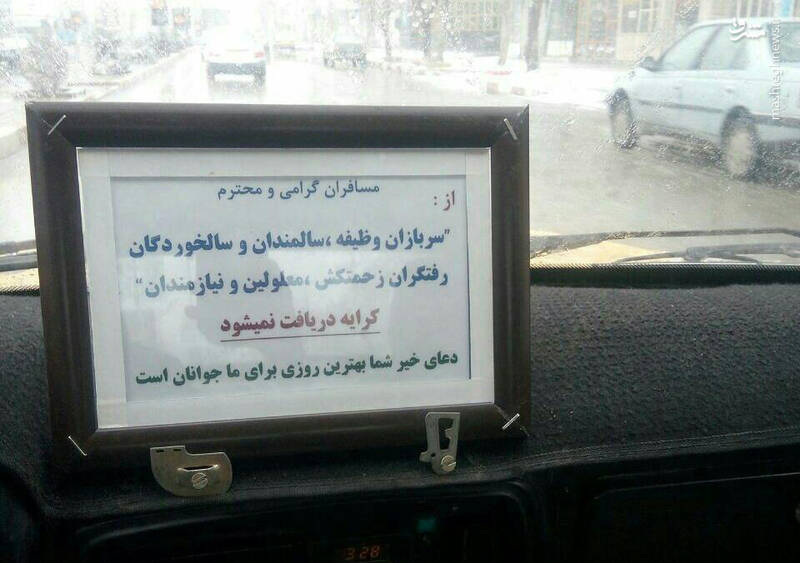 مسافران گرامی و محترم
از :
"سربازان وظیفه ،سالمندان و سالخوردگان
رفتگران زحمتکش ،معلولین و نیازمندان"
کرایه دریافت نمیشود
دعای خیر شما بهترین روزی برای ما جوانان است
3:28
mashreghnews.ir